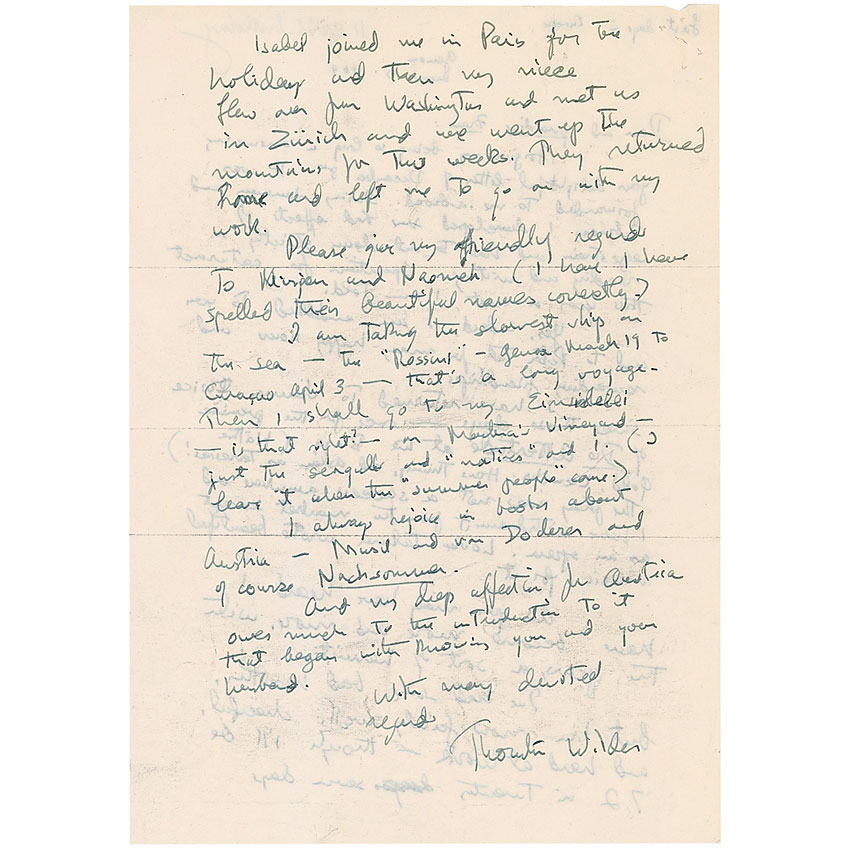 Isabel joined me in Paris for the
holidays and then my niece
flew over from Washington and met us
in Zürich and we went up the
mountains for two weeks. They returned
home and left me to go on with my
work.
Please give my friendly regards
to and (I have I have
spelled their beautiful names correctly?)
I am taking the slowest ship on
the sea — the "Rossini" – Genoa March 19 to
Curaçao April 3 — that's a long voyage –
Then I shall go to my
— is that right? — on Martha's Vineyard —
just the seagulls and "natives" and I. (I
leave it when the "summer people" come.)
I always rejoice in books about
Austria — Musil and von Doderer and
of course Nachsommer.
And my deep affection for Austria
owes much to the introduction to it
that began with knowing you and your
husband.
With many devoted
regards
Thornton Wilder